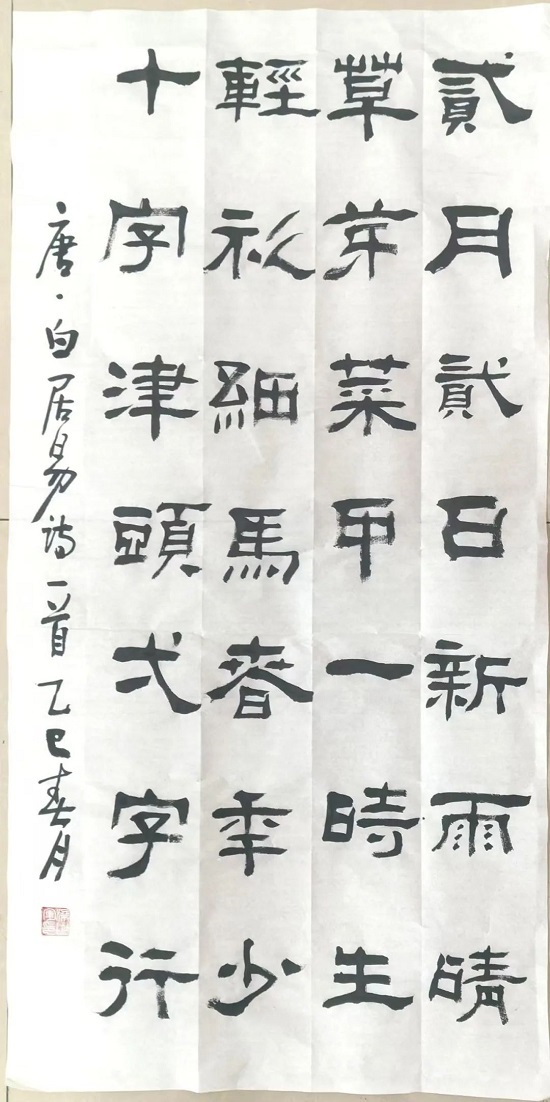 貳月貳日新雨晴
草芽菜甲一時生
輕衫細馬春年少
十字津頭弌字行
唐·白居易诗一首乙巳春月